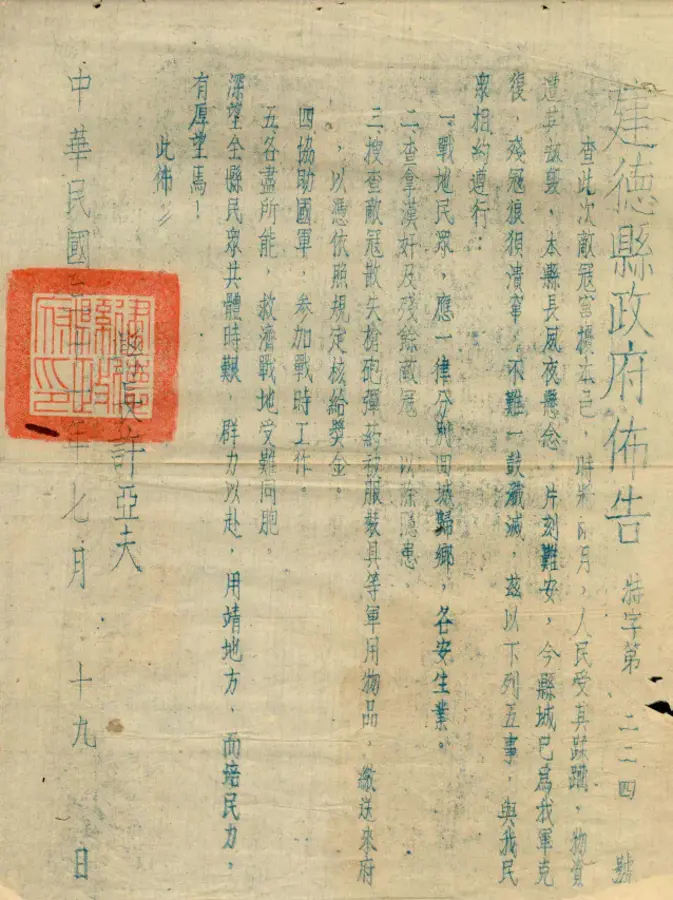 建德縣政府佈告 特字第二二四號
查此次敵寇竄擾本邑，時將兩月，人民受其蹂躪，物資
遭其敲毀，本縣長夙夜懸念，片刻難安，今縣城已爲我軍克
復，殘寇狼狽潰竄，不難一鼓殲滅，茲以下列五事，與我民
衆相約遵行：
一、戰地民眾，應一律分別回城歸鄉，各安生業。
二、查拿漢奸及殘餘敵寇，以除隱患。
三、搜查敵寇散失槍砲彈葯被服裝具等軍用物品，繳送來府
，以憑依照規定核給獎金。
四協助國軍，參加戰時工作。
五各盡所能，救濟戰地受難同胞。
深望全縣民眾共體時艱，群力以赴，用靖地方，而培民力，
有厚望焉！
此佈
縣長許亞夫
中華民國三十年七月十九日
建德縣政府印